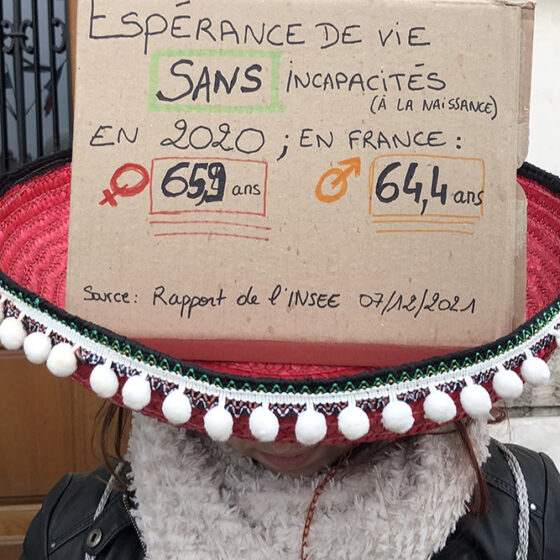 ESPÉRANCE DE VIE
SANS INCAPACITÉS
(À LA NAISSANCE)
EN 2020 ; EN FRANCE :
♀ 65,9 ans ♂ 64,4 ans
Source : Rapport de l'INSEE 07/12/2021